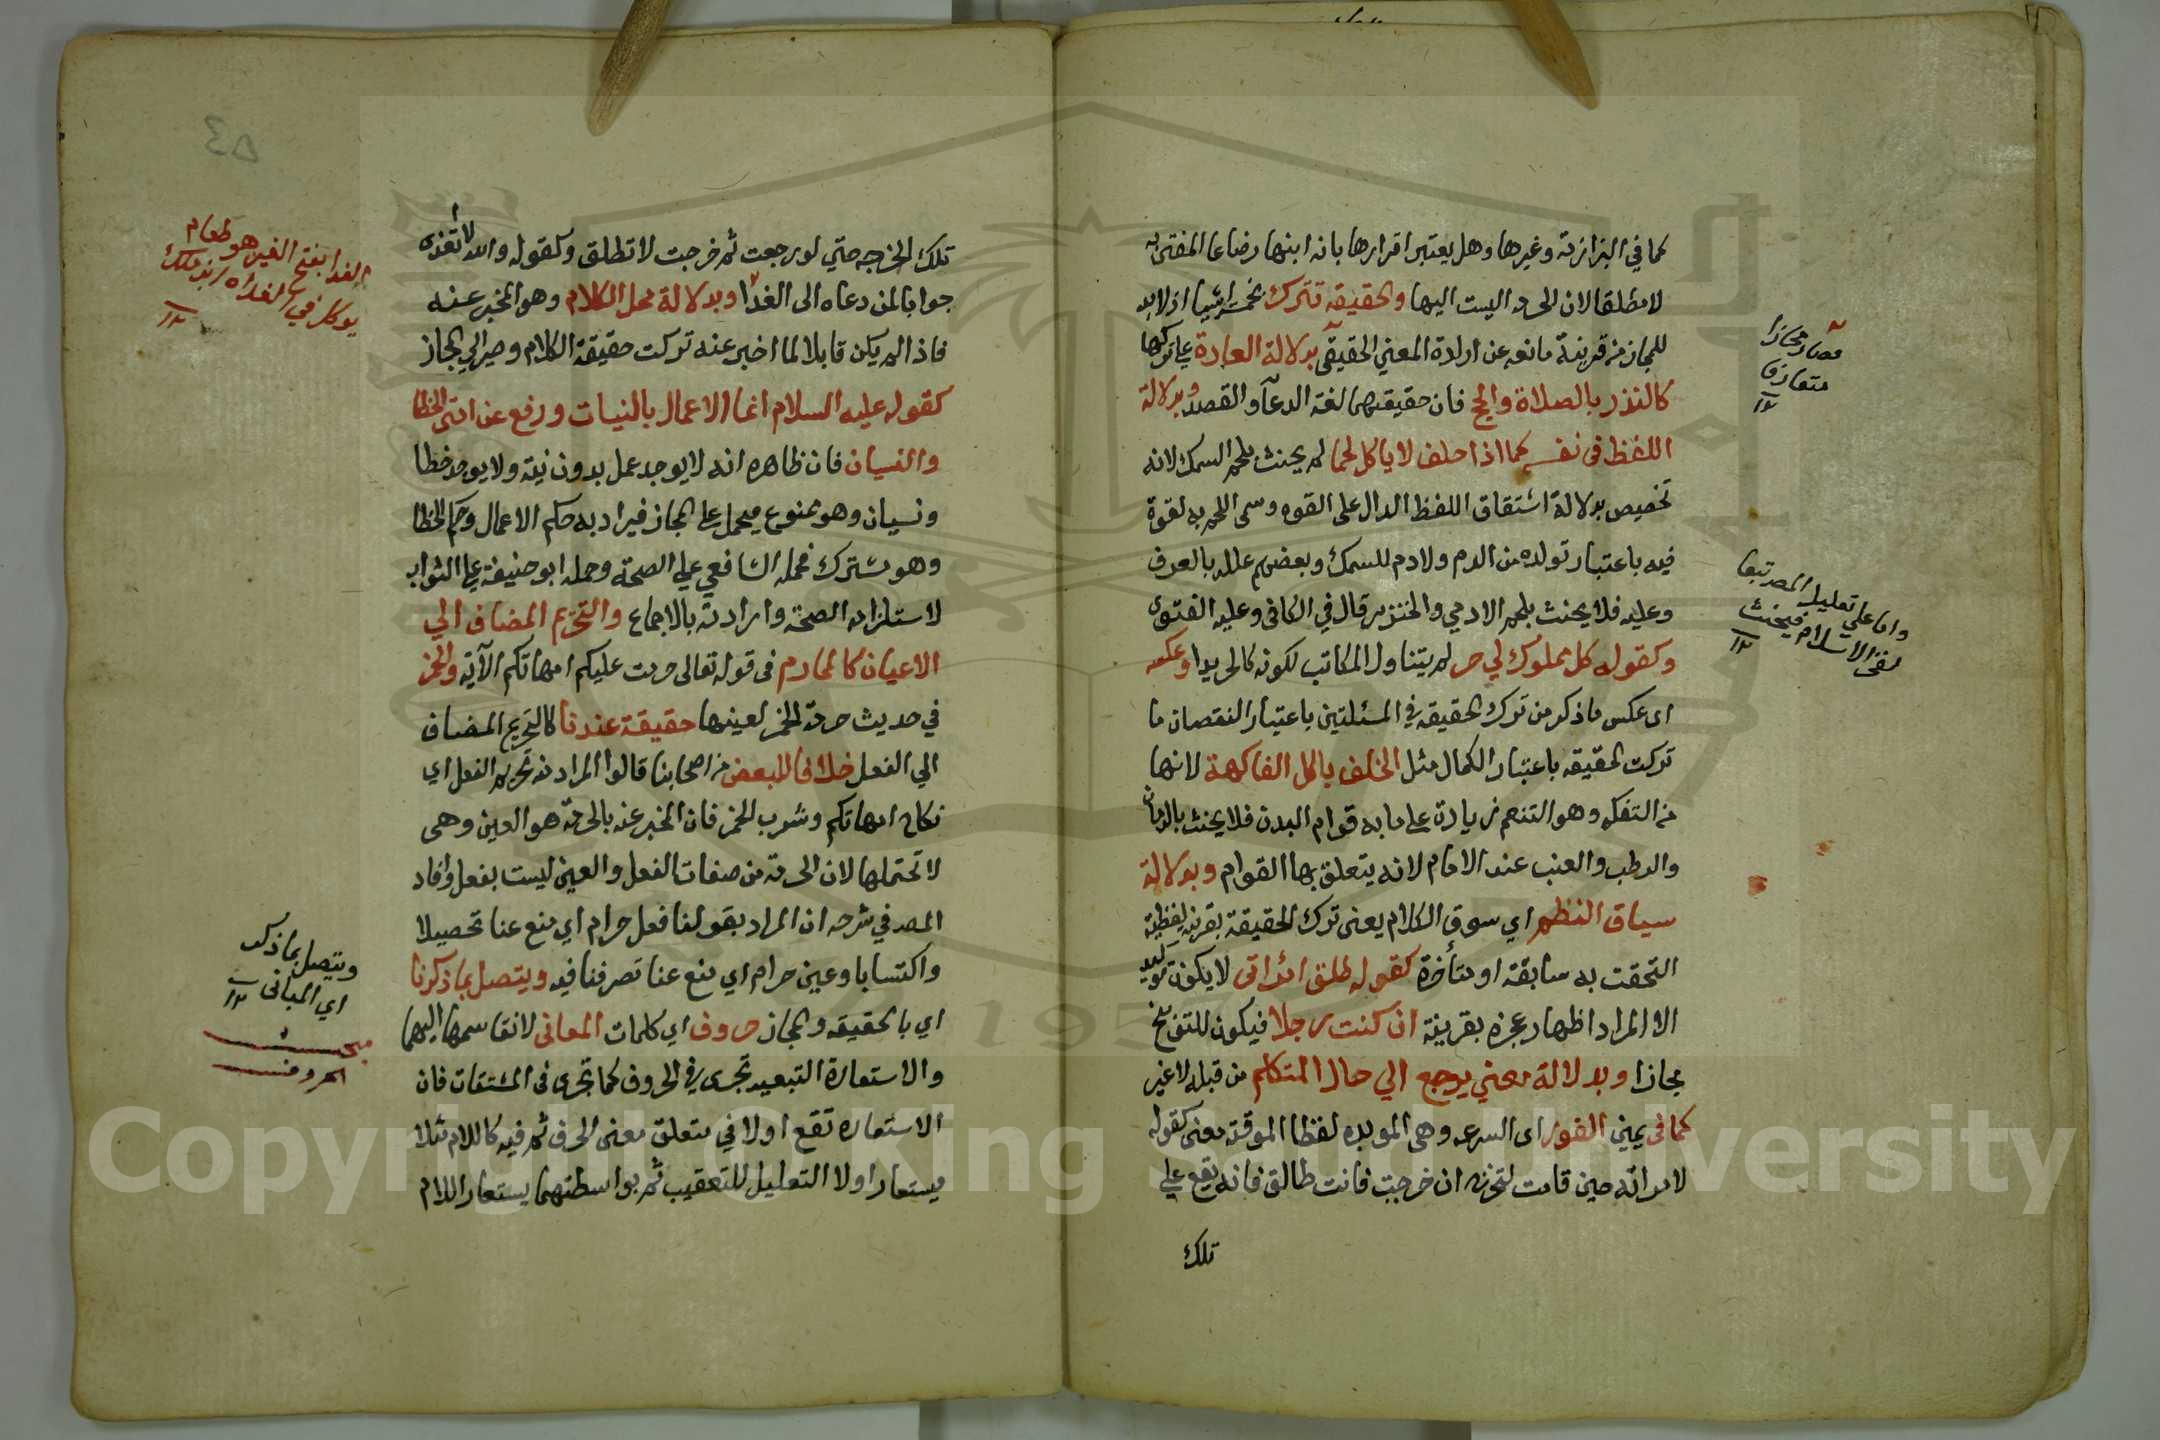 كما في البزازية وغيرها وهل يعتبر اقرارها بانه ابنها رضاعا المفتى به
لا مطلقا لان الحرمة ليست اليها والحقيقة تترك بخمسة اشيا اذ لا بد
للمجاز من قرينة مانعه عن ارادة المعنى الحقيقي بدلالة العادة على تركها
كالنذر بالصلاة والحج فان حقيقتهما لغة الدعآ والقصد وبدلالة
اللفظ في نفسه كما اذا حلف لا ياكل لحما لم يحنث بلحم السمك لانه
تخصيص بدلالة اشتقاق اللفظ الدال على القوه وسمى اللحم به لقوة
فيه باعتبار تولده من الدم ولا دم للسمك وبعضهم علله بالعرف
وعليه فلا يحنث بلحم الادمي والخنزير قال في الكافى وعليه الفتوى
وكقوله كل مملوك لي حر لم يتناول المكاتب لكونه كالحر يدا وعكسه
اى عكس ما ذكر من ترك الحقيقه في المسئلتين باعتبار النقصان ما
تركت الحقيقه باعتبار الكمال مثل الحلف باكل الفاكهة لانها
من التفكه وهو التنعم زيادة على ما به قوام البدن فلا يحنث بالرمان
والرطب والعنب عند الامام لانه يتعلق بها القوام وبدلالة
سياق النظم اي سوق الكلام يعنى ترك الحقيقة بقرينة لفظية
التحقت به سابقة او متأخرة كقوله طلق امراتى لا يكون توكيد
الا المراد اظهار عجزه بقرينة ان كنت رجلا فيكون للتوبيخ
مجازا وبدلالة معني يرجع الي حال المتكلم من قبله لا غير
كما فى يمين الفور اى السرعه وهى الموبده لفظا الموقتة معنى كقوله
لامراته حين قامت لتخرج ان خرجت فانت طالق فانه يقع على
تلك
فصار مجازا
متعارفا
١٢
واما على تعليل المص تبعا
لفخر الاسلام فيحنث
١٢
تلك الخرجه حتي لو رجعت ثم خرجت لا تطلق وكقوله والله لا تغدى
جوابا لمن دعاه الى الغدا وبدلالة محل الكلام وهو المخبر عنه
فاذا لم يكن قابلا لما اخبر عنه تركت حقيقة الكلام وصير الي المجاز
كقوله عليه السلام انما الاعمال بالنيات ورفع عن امتى الخطا
والنسيان فان ظاهره انه لا يوجد عمل بدون نية ولا يوجد خطا
ونسيان وهو ممنوع فيحمل على المجاز فيراد به حكم الاعمال وحكم الخطا
وهو مشترك فحمله الشافعي على الصحة وحمله ابو حنيفة على الثواب
لاستلزامه الصحة وارادته بالاجماع والتحريم المضاف الي
الاعيان كالمحارم فى قوله تعالى حرمت عليكم امهاتكم الآية والخمر
في حديث حرمة الخمر لعينها حقيقة عندنا كالتحريم المضاف
الي الفعل خلافا للبعض من اصحابنا قالوا المراد منه تحريم الفعل اي
نكاح امهاتكم وشرب الخمر فان المخبر عنه بالحرمة هو العين وهى
لا تحتملها لان الحرمة من صفات الفعل والعين ليست بفعل وافاد
المص في شرحه ان المراد بقولنا فعل حرام اي منع عنا تحصيلا
واكتسابا وعين حرام اي منع عنا تصرفنا فيه ويتصل بما ذكرنا
اي بالحقيقه والمجاز حروف اي كلمات المعانى لانقاسمها اليهما
والاستعارة التبعيه تجرى في الحروف كما تجرى فى المشتقات فان
الاستعاره تقع اولا في متعلق معنى الحرف ثم فيه كاللام مثلا
فيستعار اولا التعليل للتعقيب ثم بواسطتهما يستعار اللام
٥٣
الغدا بفتح الغين هو طعام
يوكل في الغداه
١٢
ويتصل بما ذكر
اي المباني
١٢
مبحث
الحروف
Copyright © King Saud University
195